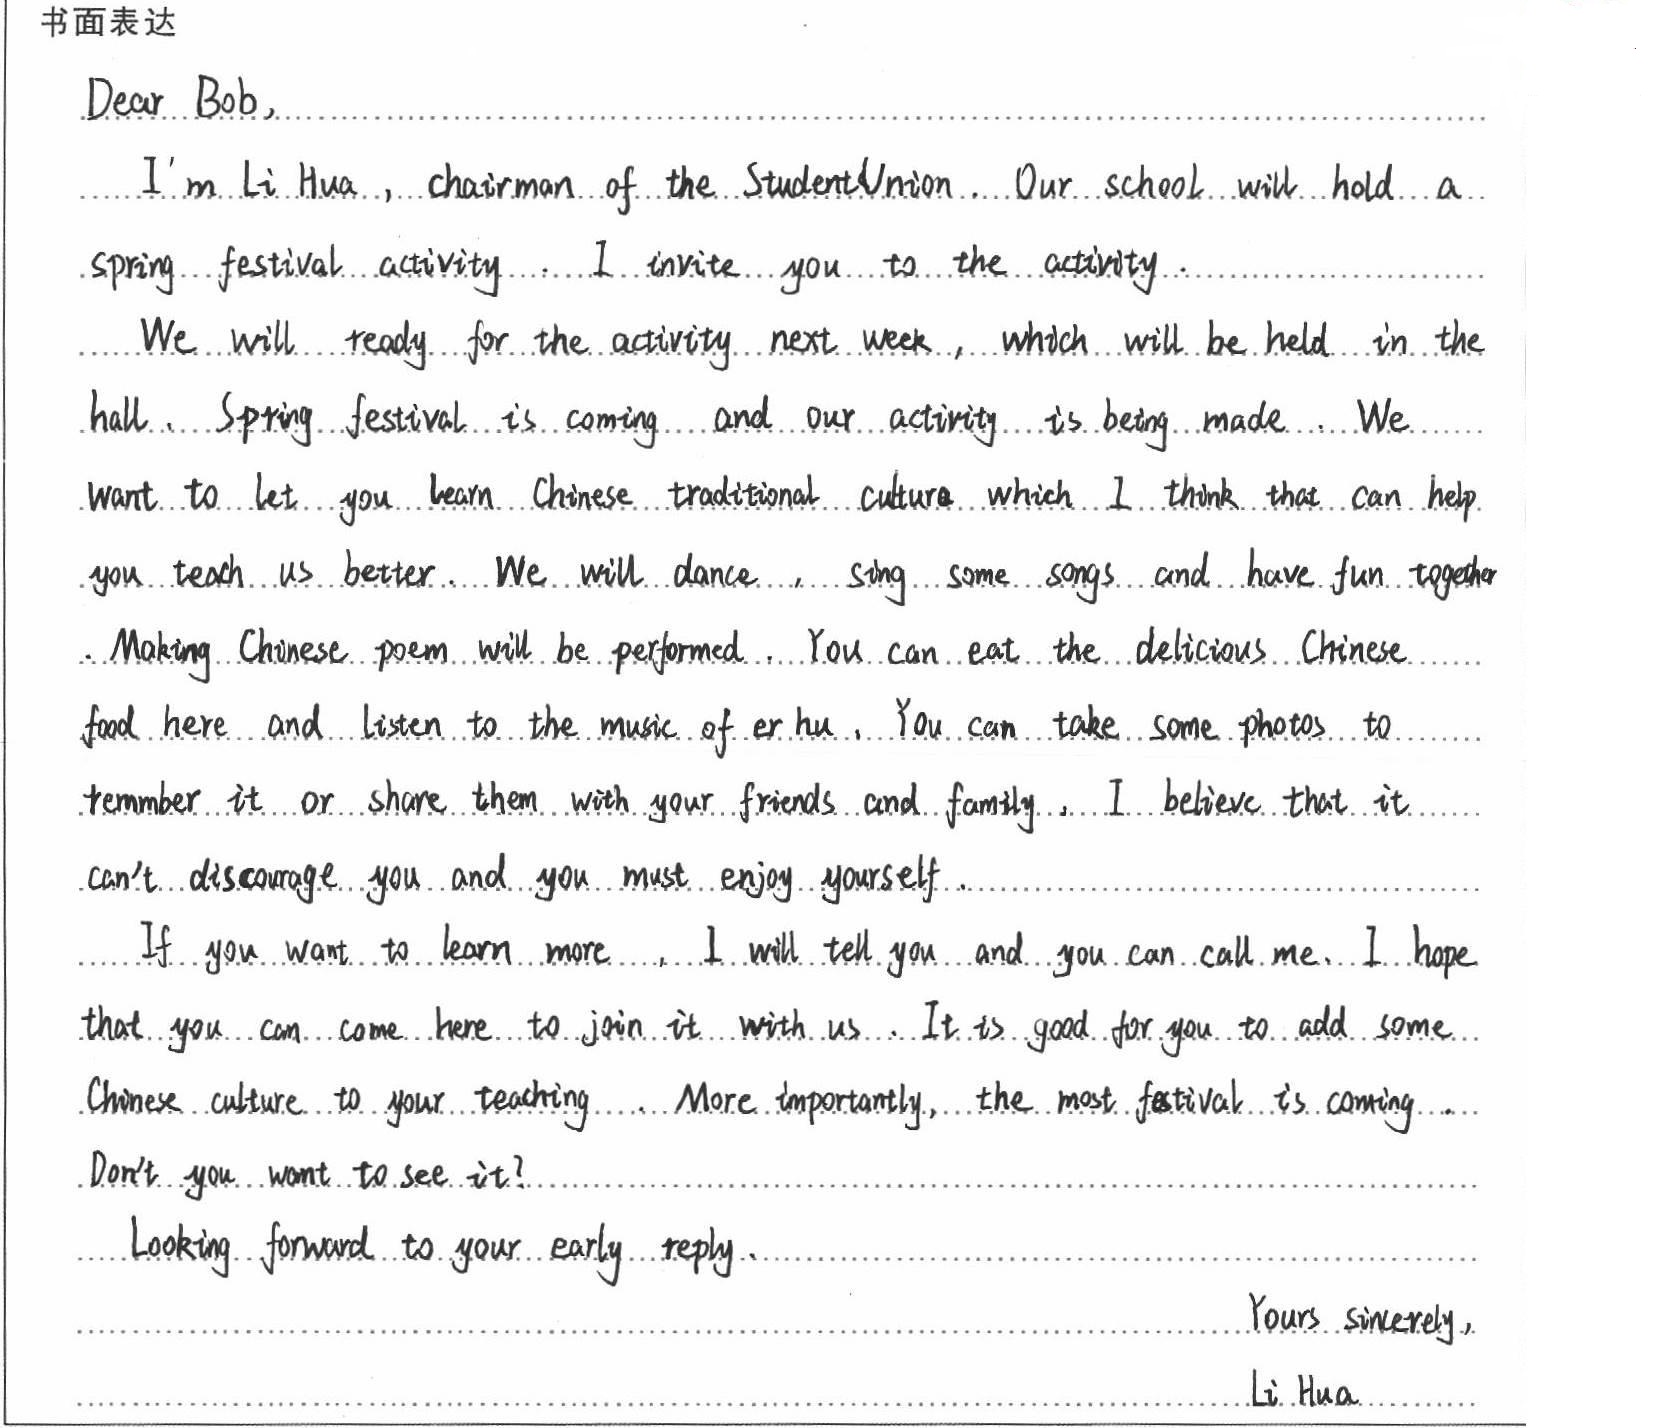 书面表达
Dear Bob,
I'm Li Hua, chairman of the Student Union. Our school will hold a
spring festival activity. I invite you to the activity.
We will ready for the activity next week, which will be held in the
hall. Spring festival is coming and our activity is being made. We
want to let you learn Chinese traditional culture which I think that can help
you teach us better. We will dance, sing some songs and have fun together
. Making Chinese poem will be performed. You can eat the delicious Chinese
food here and listen to the music of er hu. You can take some photos to
remmber it or share them with your friends and family. I believe that it
can't discourage you and you must enjoy yourself.
If you want to learn more, I will tell you and you can call me. I hope
that you can come here to join it with us. It is good for you to add some
Chinese culture to your teaching. More importantly, the most festival is coming.
Don't you want to see it?
Looking forward to your early reply.
Yours sincerely,
Li Hua